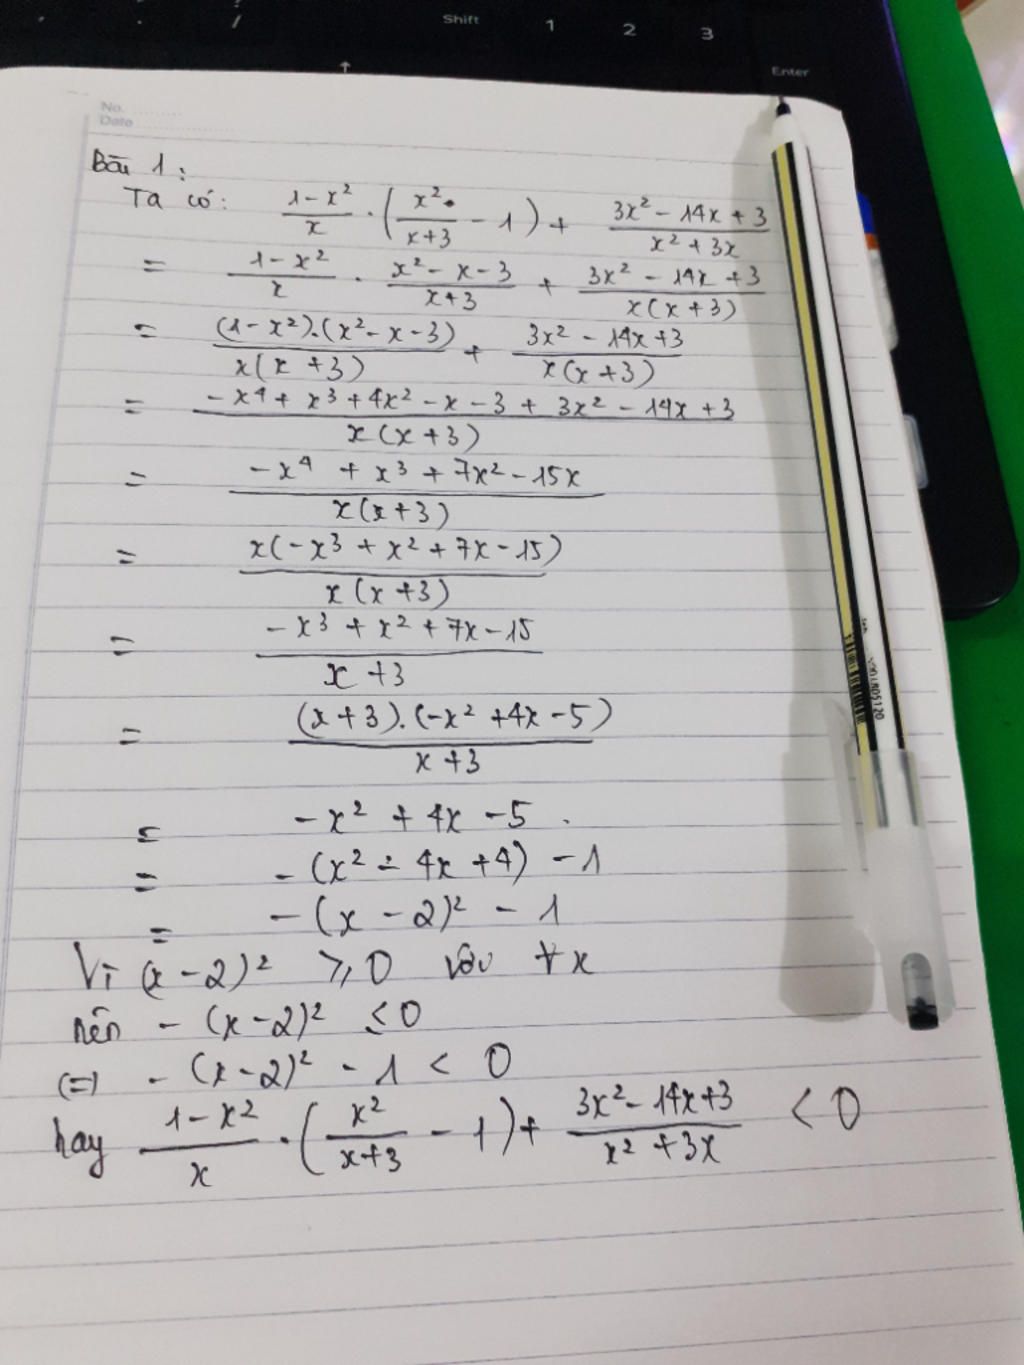 Shift
1
2
3
Enter
No.
Date
Bài 1:
Ta có: \frac{1-x^2}{x} \cdot \left(\frac{x^2}{x+3} - 1\right) + \frac{3x^2 - 14x + 3}{x^2 + 3x}
= \frac{1-x^2}{x} \cdot \frac{x^2 - x - 3}{x+3} + \frac{3x^2 - 14x + 3}{x(x+3)}
= \frac{(1-x^2).(x^2 - x - 3)}{x(x+3)} + \frac{3x^2 - 14x + 3}{x(x+3)}
= \frac{-x^4 + x^3 + 4x^2 - x - 3 + 3x^2 - 14x + 3}{x(x+3)}
= \frac{-x^4 + x^3 + 7x^2 - 15x}{x(x+3)}
= \frac{x(-x^3 + x^2 + 7x - 15)}{x(x+3)}
= \frac{-x^3 + x^2 + 7x - 15}{x+3}
= \frac{(x+3).(-x^2 + 4x - 5)}{x+3}
= -x^2 + 4x - 5.
= -(x^2 - 4x + 4) - 1
= -(x-2)^2 - 1
Vì (x-2)^2 ≥ 0 với ∀x
nên -(x-2)^2 ≤ 0
(=) -(x-2)^2 - 1 < 0
hay \frac{1-x^2}{x} \cdot \left(\frac{x^2}{x+3} - 1\right) + \frac{3x^2 - 14x + 3}{x^2 + 3x} < 0